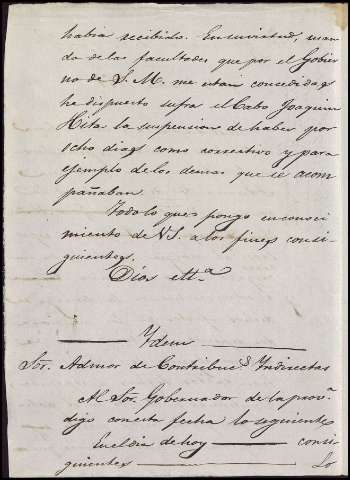 habia recibido. En su virtud, usan
do de las facultades que por el Gobier
no de S. M. me estan concedidas
he dispuesto sufra el Cabo Joaquin
Hita la suspension de haber por
ocho dias como correctivo y para
ejemplo de los demas que le acom
pañaban.
Todo lo que pongo en conoci
miento de VS. a los fines consi
guientes.
Dios ett.ª
Ydem
Sor. Admor de Contribuc.s Yndirectas
Al Sor. Gobernador de la prov.ª
digo con esta fecha lo siguiente
En el dia de hoy consi
guientes Lo